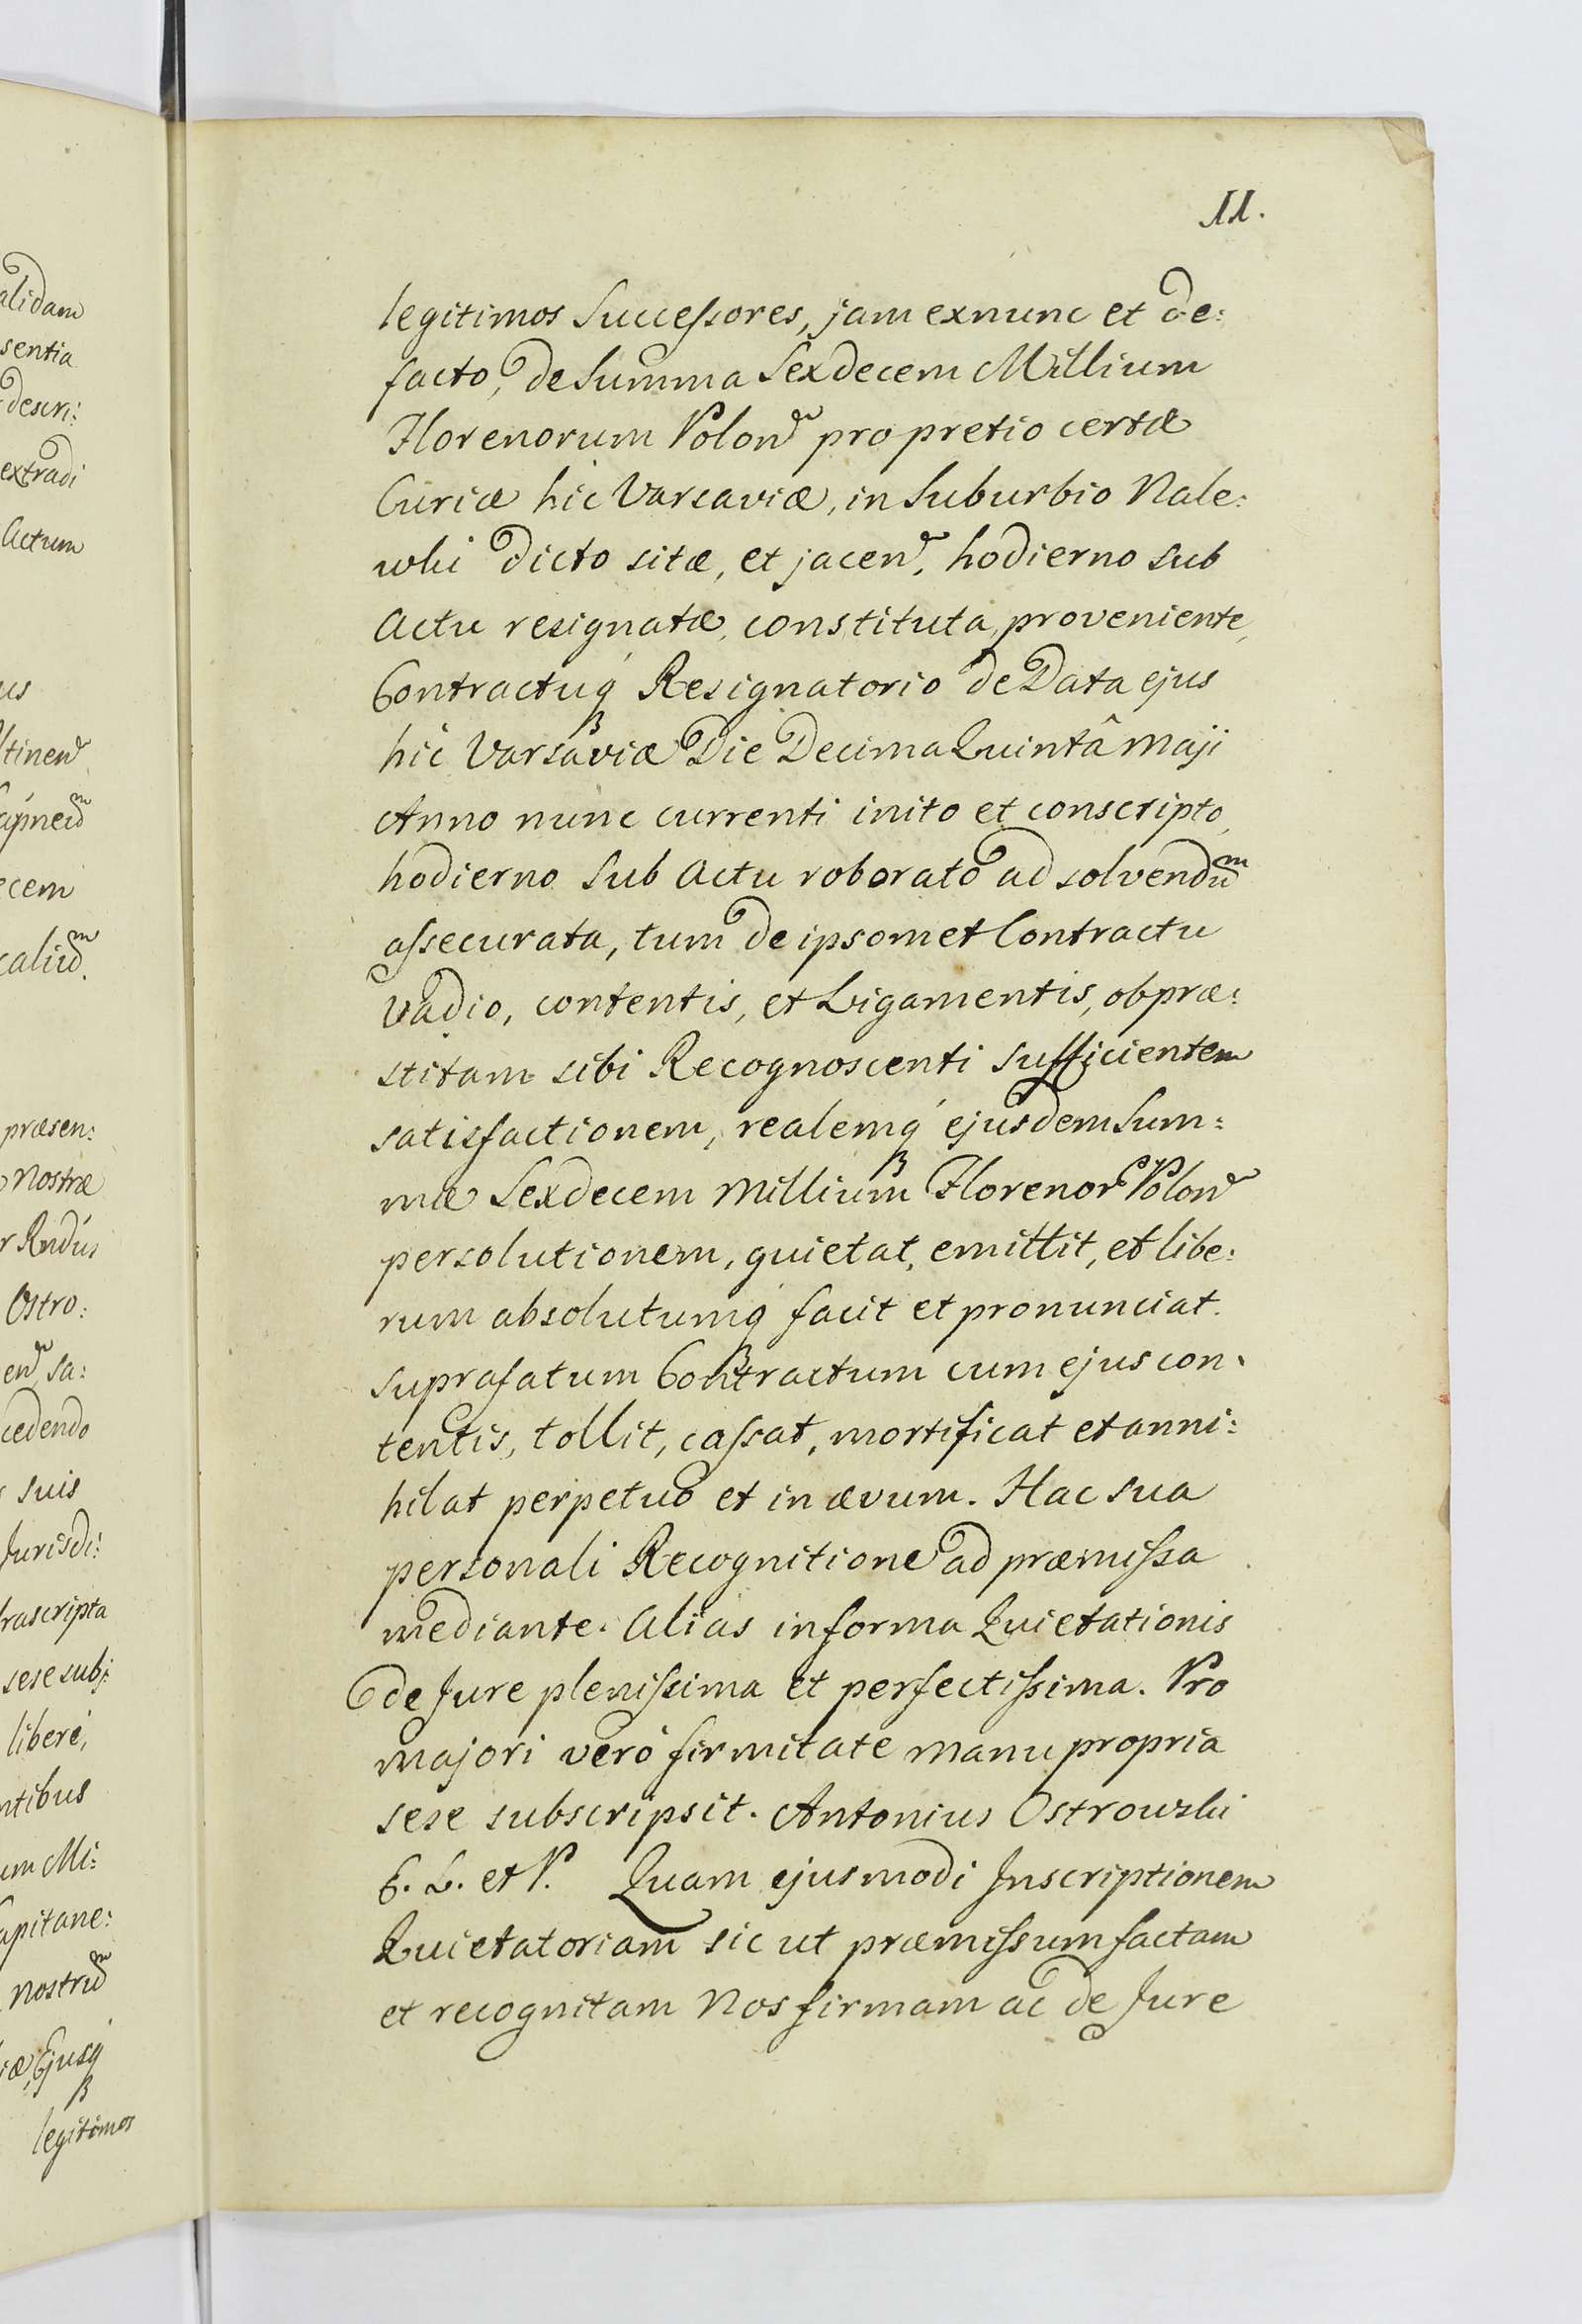 alidam
sentia
descri:
extradi
Actum
us
tinen
apneu
ecem
præsen:
nostræ
r Rndus
Ostro:
en sa:
cedendo
suis
Jurisdi:
frascripta
sese subj:
liberè,
ntibus
um Mi:
apitane:
nostru
iæ, Ejusq
legitimos
11.
legitimos Successores, jam exnunc et de:
facto, de Summa Sexdecem Millium
Florenorum Polon pro pretio certæ
Curiæ hic Varsaviæ, in Suburbio Nale:
wki dicto sitæ, et jacen, hodierno sub
Actu resignatæ, constituta, proveniente,
Contractuq Resignatorio de Data ejus
hic Varsaviæ Die Decima Quintâ Maji
Anno nunc currenti inito et conscripto,
hodierno Sub Actu roborato ad solvendum
assecurata, tum de ipsomet Contractu
Vadio, contentis, et Ligamentis, ob præ:
stitam sibi Recognoscenti sufficientem
satisfactionem, realemq ejusdem Sum:
mæ Sexdecem Millium Florenor Polon
persolutionem, quietat, emittit, et libe:
rum absolutumq facit et pronunciat.
suprafatum Contractum cum ejus con:
tentis, tollit, cassat, mortificat et anni:
hilat perpetuo et in ævum. Hac sua
personali Recognitione ad præmissa
mediante. Alias in forma Quietationis
de Jure plenissima et perfectissima. Pro
majori verò firmitate manu propria
sese subscripsit. Antonius Ostrowski
E. L. et P. Quam ejusmodi Inscriptionem
Quietatoriam sic ut præmissum factam
et recognitam Nos firmam ac de Jure